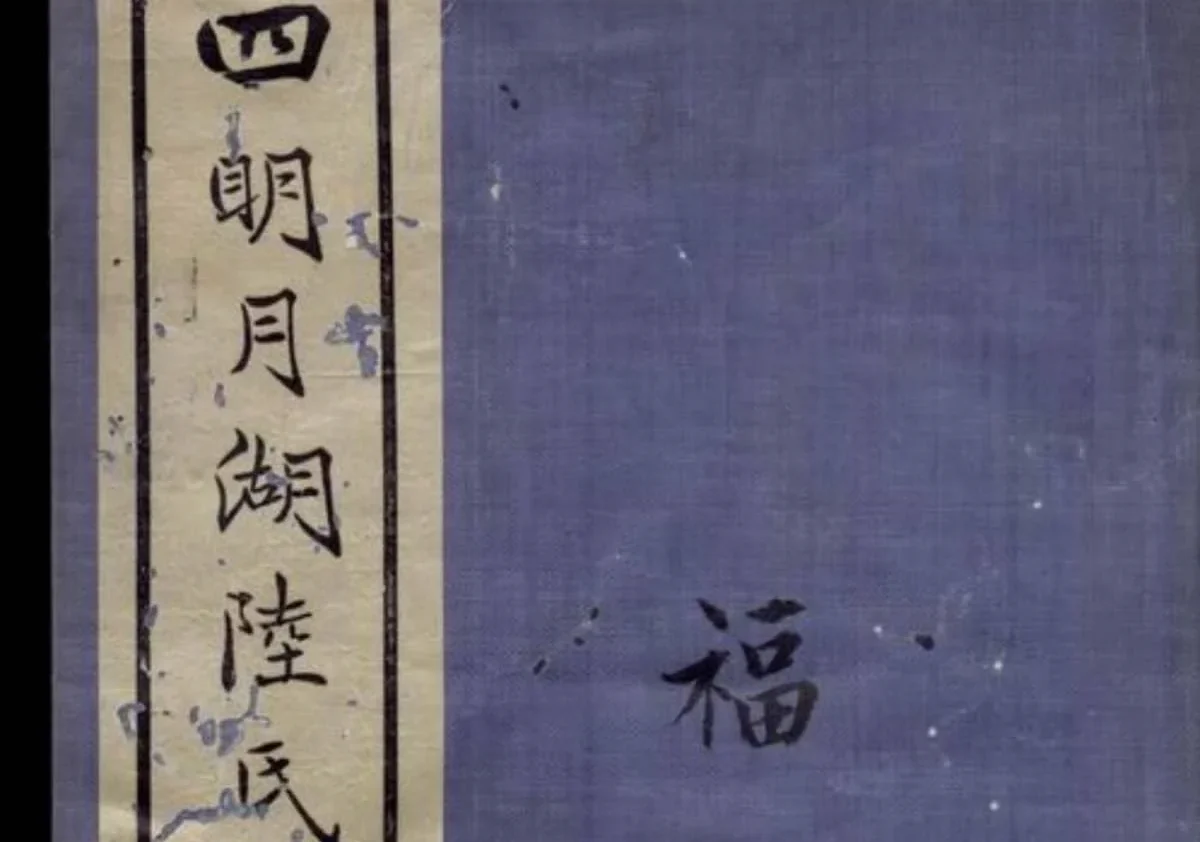 四明月湖陸氏
福